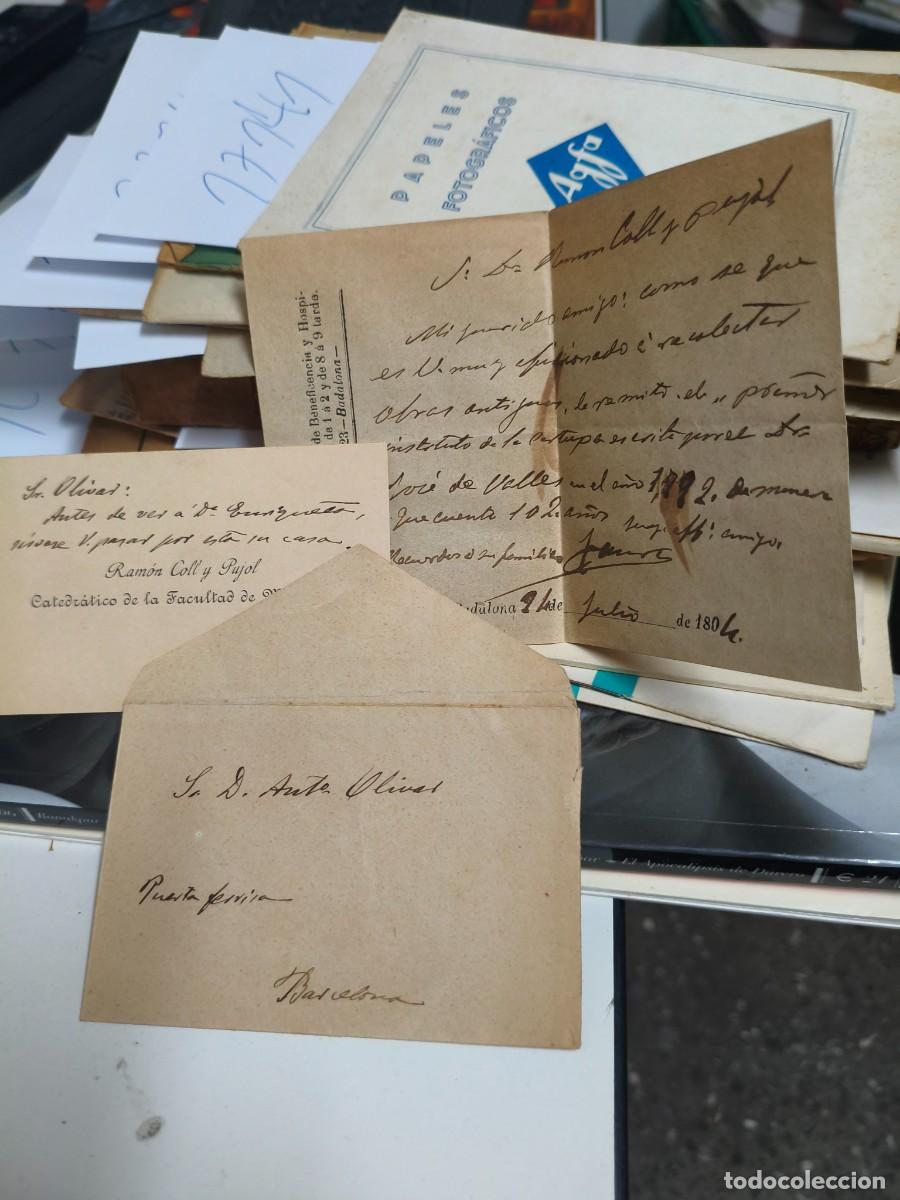 PAPELES
FOTOGRÁFICOS
Agfa
de Beneficencia y Hospi-
de 1 à 2 y de 8 à 9 tarde.
23—Badalona—
Sr. Dn. Ramón Coll y Pujol
Mi querido amigo: como se que
es V. muy aficionado à recolectar
obras antiguas, le remito el
instituto de la escrita por el Dr.
José de Valles en el año 1,792. De manera
que cuenta 102 años
amigo,
Recuerdos à su familia
Badalona 24 de Julio de 1804.
Sr. Olivar:
Antes de ver à Da. Enriqueta,
sirvase V. pasar por esta su casa.
Ramón Coll y Pujol
Catedrático de la Facultad de M
Sr. D. Anto. Olivar
Puerta ferrisa
Barcelona
El Apocalipsis de Durero
€ 21
todocoleccion